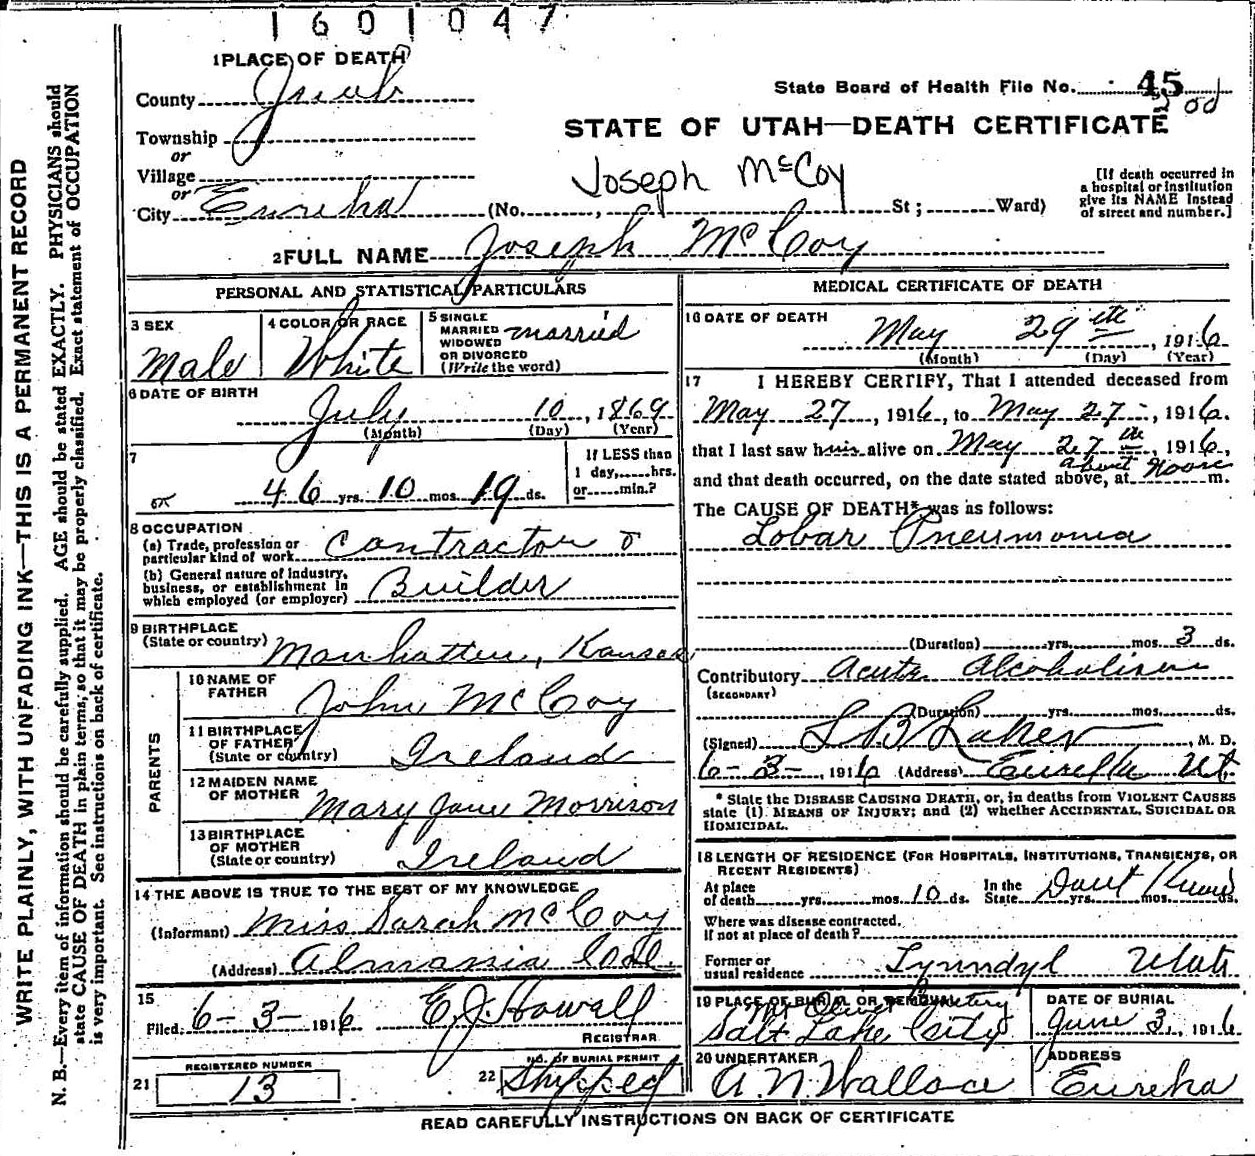 1601047
1 PLACE OF DEATH
County Juab
State Board of Health File No. 45
Township
or
Village
or
City Eureka (No. , St ; Ward)
STATE OF UTAH—DEATH CERTIFICATE
Joseph McCoy
[If death occurred in
a hospital or institution
give its NAME instead
of street and number.]
2 FULL NAME Joseph McCoy
PERSONAL AND STATISTICAL PARTICULARS
3 SEX
Male
4 COLOR OR RACE
White
5 SINGLE
MARRIED
WIDOWED
OR DIVORCED
(Write the word)
married
6 DATE OF BIRTH
July 10, 1869
(Month) (Day) (Year)
7
46 yrs. 10 mos. 19 ds.
If LESS than
1 day, hrs.
or min.?
8 OCCUPATION
(a) Trade, profession or
particular kind of work Contractor &
(b) General nature of industry,
business, or establishment in
which employed (or employer) Builder
9 BIRTHPLACE
(State or country) Manhatten, Kansas
PARENTS
10 NAME OF
FATHER John McCoy
11 BIRTHPLACE
OF FATHER
(State or country) Ireland
12 MAIDEN NAME
OF MOTHER Mary Jane Morrison
13 BIRTHPLACE
OF MOTHER
(State or country) Ireland
14 THE ABOVE IS TRUE TO THE BEST OF MY KNOWLEDGE
(Informant) Miss Sarah McCoy
(Address)
15
Filed 6-3- 1916 E. J. Howell
REGISTRAR
21
REGISTERED NUMBER
13
22
NO. OF BURIAL PERMIT
Shipped
MEDICAL CERTIFICATE OF DEATH
16 DATE OF DEATH
May 29th, 1916
(Month) (Day) (Year)
17 I HEREBY CERTIFY, That I attended deceased from
May 27, 1916, to May 27-, 1916.
that I last saw him alive on May 27th, 1916,
and that death occurred, on the date stated above, at about Noon m.
The CAUSE OF DEATH* was as follows:
Lobar Pneumonia
(Duration) yrs. mos. 3 ds.
Contributory Acute Alcoholism
(SECONDARY)
(Duration) yrs. mos. ds.
(Signed) L B Laker, M. D.
6-3-, 1916 (Address) Eureka Ut.
* State the DISEASE CAUSING DEATH, or, in deaths from VIOLENT CAUSES
state (1) MEANS OF INJURY; and (2) whether ACCIDENTAL, SUICIDAL OR
HOMICIDAL.
18 LENGTH OF RESIDENCE (FOR HOSPITALS, INSTITUTIONS, TRANSIENTS, OR
RECENT RESIDENTS)
At place
of death yrs. mos. 10 ds. In the
State yrs. mos. ds. Dont Know
Where was disease contracted,
if not at place of death?
Former or
usual residence Lynndyl Utah
19 PLACE OF BURIAL OR REMOVAL
Mt Olivet Cemetery
Salt Lake City
DATE OF BURIAL
June 3, 1916
20 UNDERTAKER
A. N. Wallace
ADDRESS
Eureka
READ CAREFULLY INSTRUCTIONS ON BACK OF CERTIFICATE
WRITE PLAINLY, WITH UNFADING INK—THIS IS A PERMANENT RECORD
N. B.—Every item of information should be carefully supplied. AGE should be stated EXACTLY. PHYSICIANS should
state CAUSE OF DEATH in plain terms, so that it may be properly classified. Exact statement of OCCUPATION
is very important. See instructions on back of certificate.